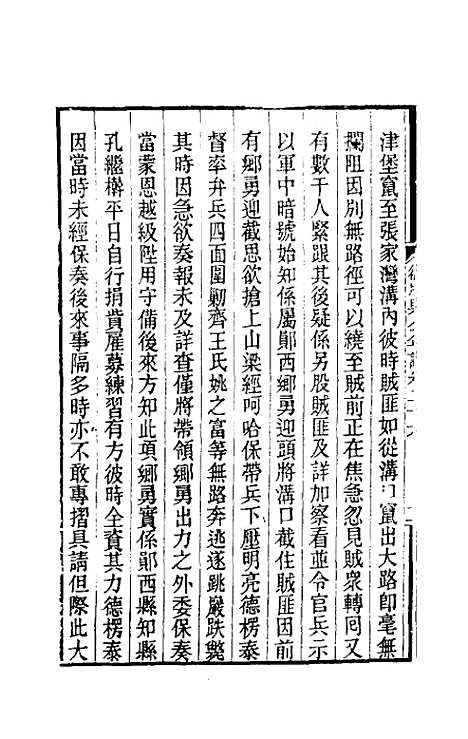 津堡竄至張家灣溝內彼時賊匪如從溝口竄出大路卽毫無
攔阻因別無路徑可以繞至賊前正在焦急忽見賊衆轉囘又
有數千人緊跟其後疑係另股賊匪及詳加察看並令官兵示
以軍中暗號始知係屬鄖西鄉勇迎頭將溝口截住賊匪因前
有鄉勇迎截思欲搶上山梁經呵哈保帶兵下壓明亮德楞泰
督率弁兵四面圍勦齊王氏姚之富等無路奔逃逐跳巖跌斃
其時因急欲奏報未及詳查僅將帶領鄉勇出力之外委保奏
當蒙恩越級陞用守備後來方知此項鄉勇實係鄖西縣知縣
孔繼檊平日自行捐貲雇募練習有方彼時全資其力德楞泰
因當時未經保奏後來事隔多時亦不敢專摺具請但際此大